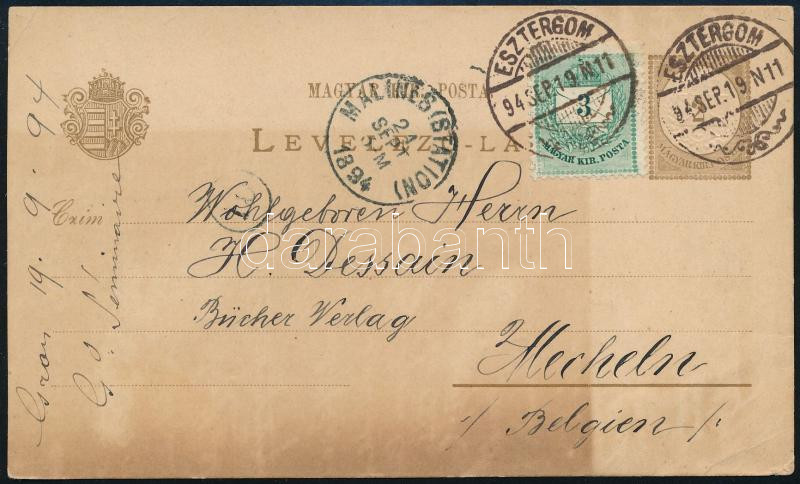 MAGYAR KIR. POSTA
LEVELEZŐ-LAP
ESZTERGOM
94 SEP. 19 N 11
ESZTERGOM
94 SEP. 19 N 11
3
MAGYAR KIR. POSTA
MAGYAR KIR. POSTA
MALINES (STATION)
SEPT
1894
Czim
Wohlgeboren Herrn
H. Dessain
Bücher Verlag
Mecheln
/ Belgien /.
Gran 19. 9. 94
Seminaire
darabanth